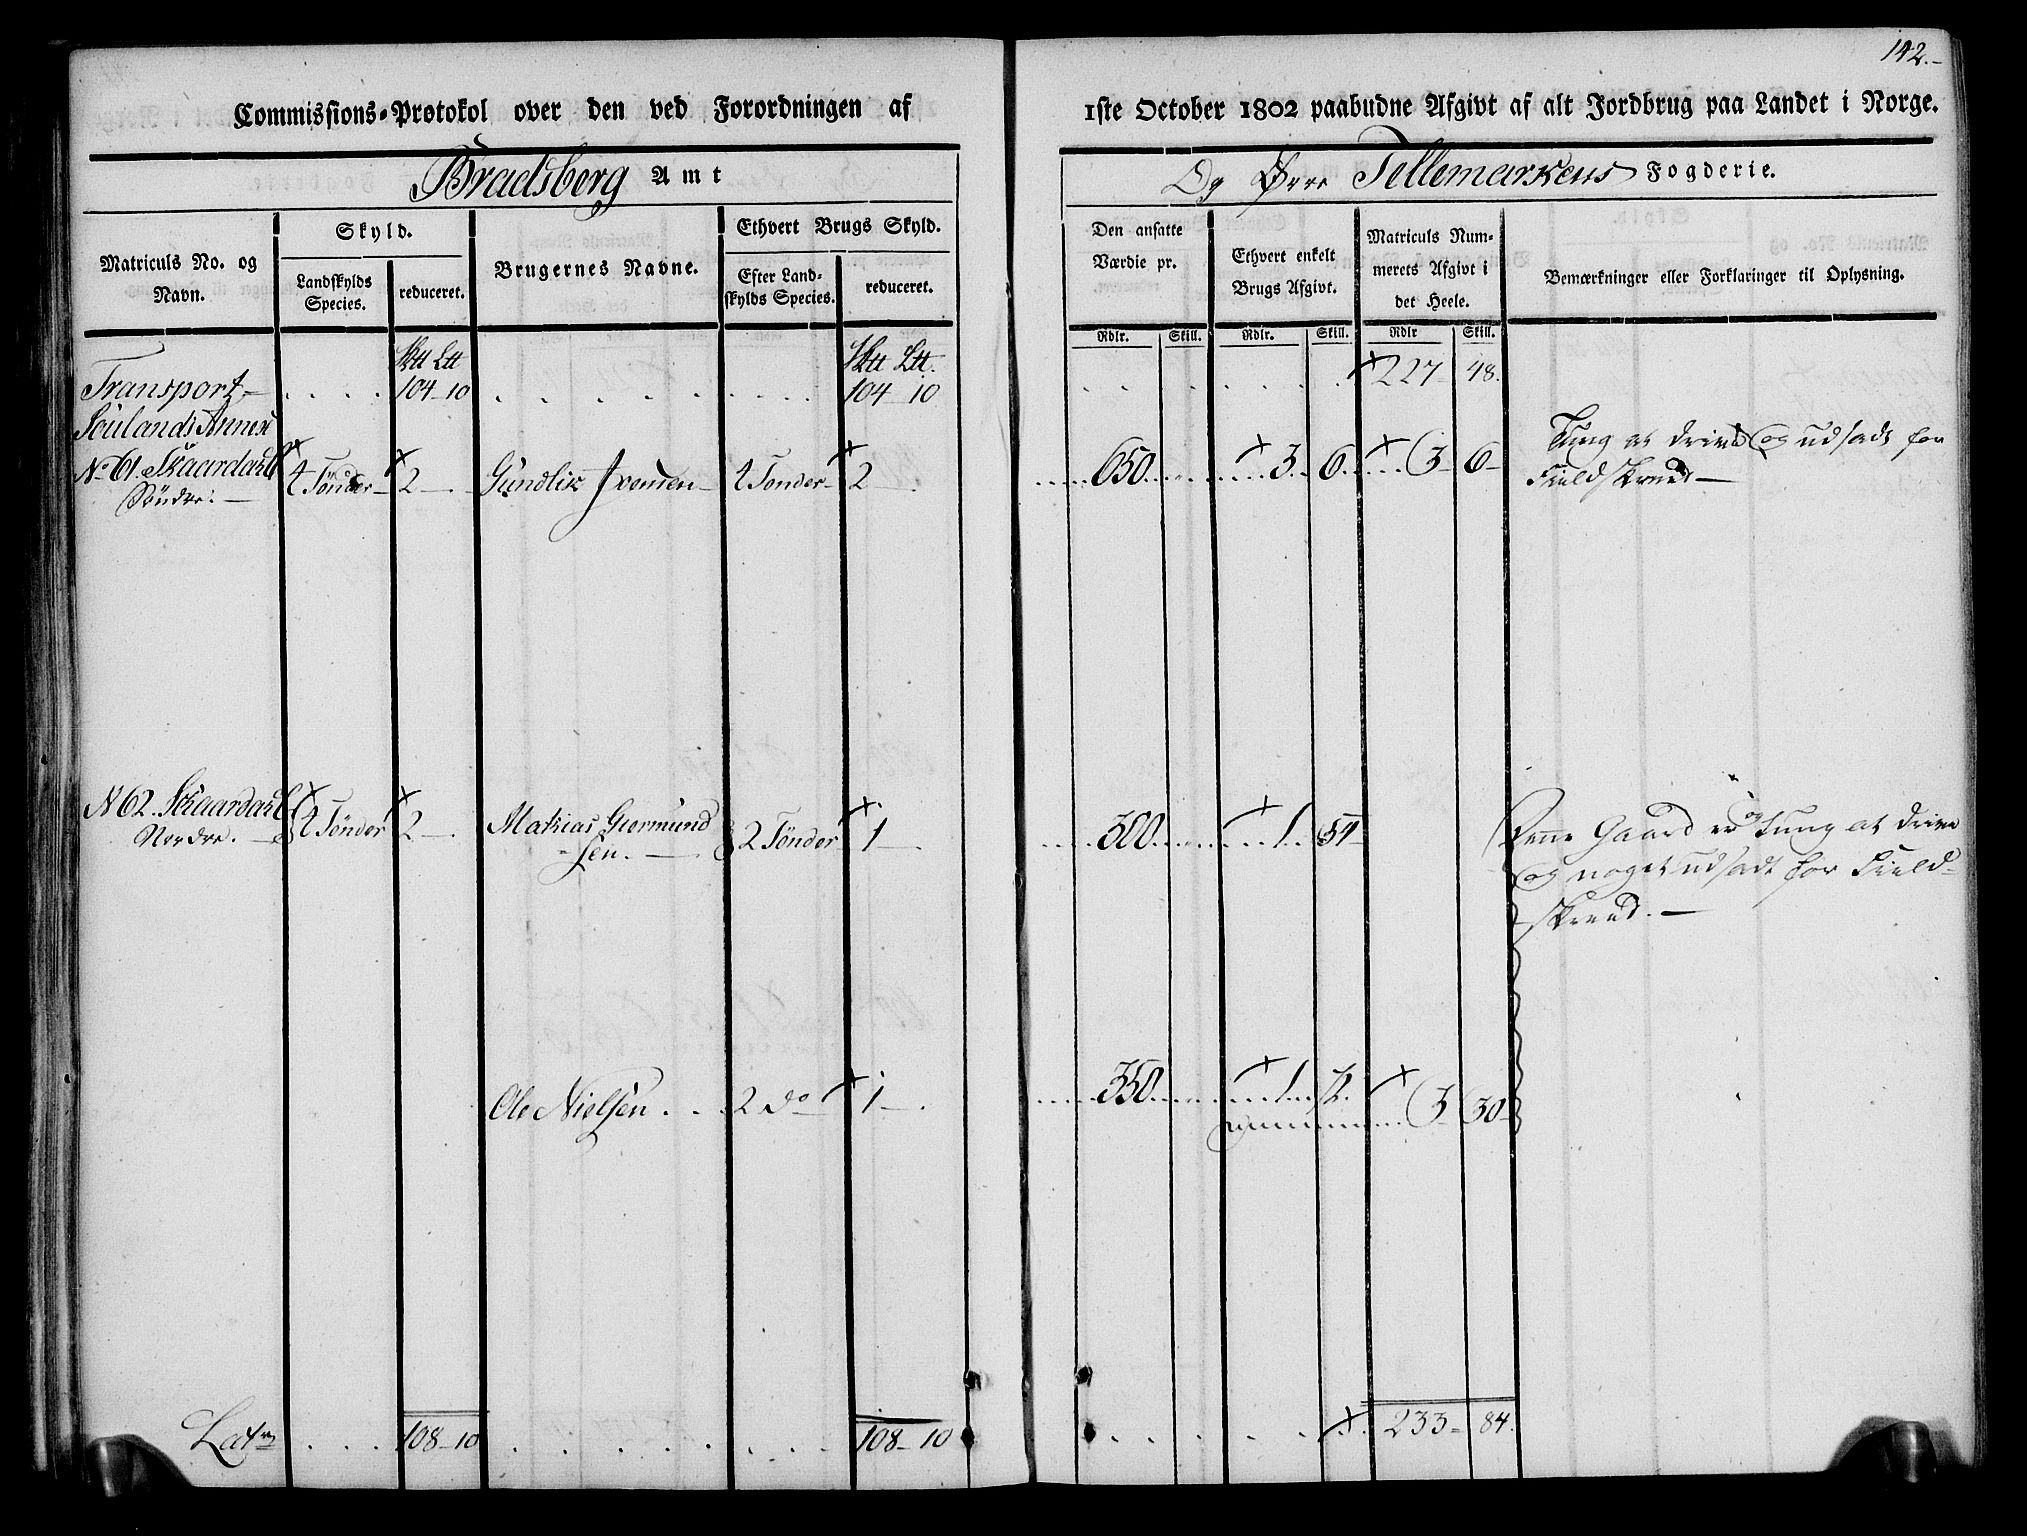 142.-
Commissions-Protokol over den ved Forordningen af 1ste October 1802 paabudne Afgivt af alt Jordbrug paa Landet i Norge.
Bradsberg Amt Og Øvre Tellemarkens Fogderie.
Matriculs No. og Navn.
Skyld.
Landskylds Species.
reduceret.
Brugernes Navne.
Ethvert Brugs Skyld.
Efter Landskylds Species.
reduceret.
Den ansatte Værdie pr.
Rdlr. Skill.
Ethvert enkelt Brugs Afgivt.
Rdlr. Skill.
Matriculs Nummerets Afgivt i det Heele.
Rdlr Skill.
Bemærkninger eller Forklaringer til Oplysning.
Transport - 104 - 10 104 - 10 227 - 48.
Soulands Annex
No 61. Skaardahl Söndre 4 Tønder - 2 - Gundlik Svensen - 4 Tønder - 2 - 650 3. 6. 3 - 6 -
Tung at drive og udsadt for
Fieldskreed -
N 62. Skaardahl Nordre. - 4 Tønder 2 - Mathias Giermund
sen. - 2 Tönder 1 - 300 1. 54
Denne Gaard er og tung at drive
og noget udsadt for Field-
skreed. -
Ole Nielsen 2 do 1 - 350 1 72. 3 - 30 -
Latus 108 - 10 108 - 10 233 - 84.